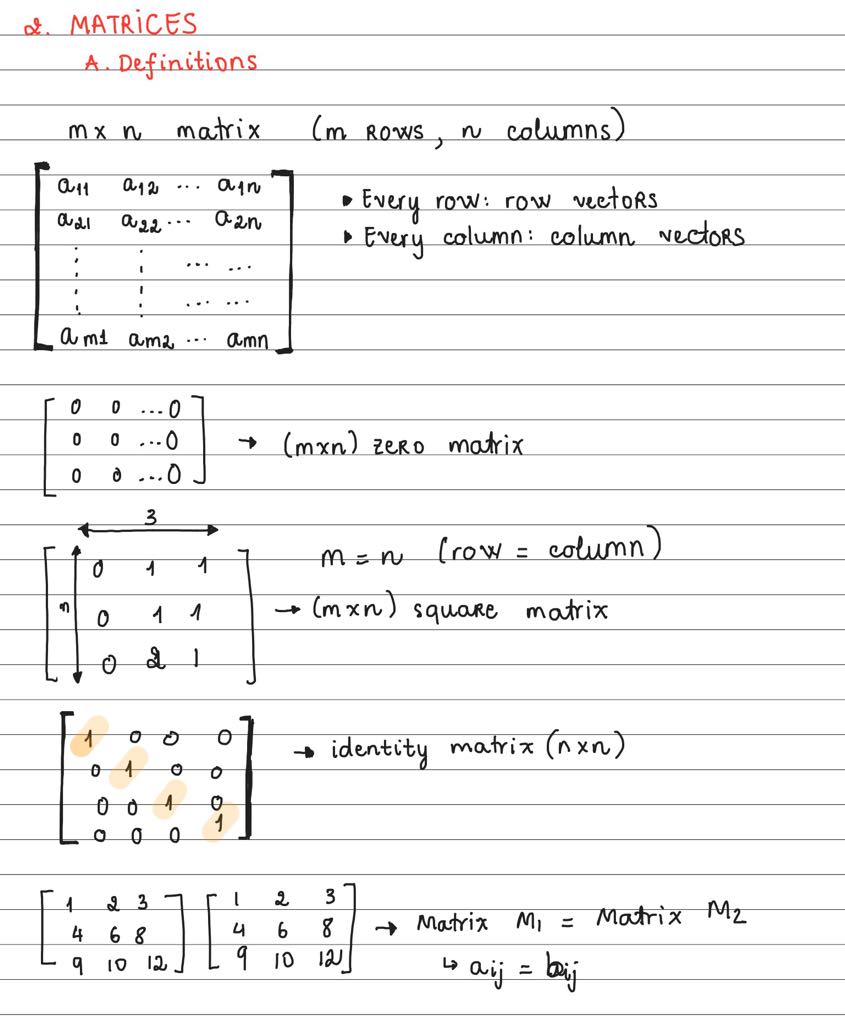 2. MATRICES
A. Definitions
m x n matrix (m ROWS, n columns)
a11 a12 ... a1n
a21 a22 ... a2n
⋮ ⋮ ... ...
⋮ ⋮ ... ...
am1 am2 ... amn
• Every row: row vectors
• Every column: column vectors
0 0 ...0
0 0 ...0
0 0 ...0
→ (mxn) zero matrix
3
0 1 1
0 1 1
0 2 1
m = n (row = column)
→ (mxn) square matrix
1 0 0 0
0 1 0 0
0 0 1 0
0 0 0 1
→ identity matrix (nxn)
1 2 3
4 6 8
9 10 12
1 2 3
4 6 8
9 10 12
→ Matrix M1 = Matrix M2
↳ aij = bij